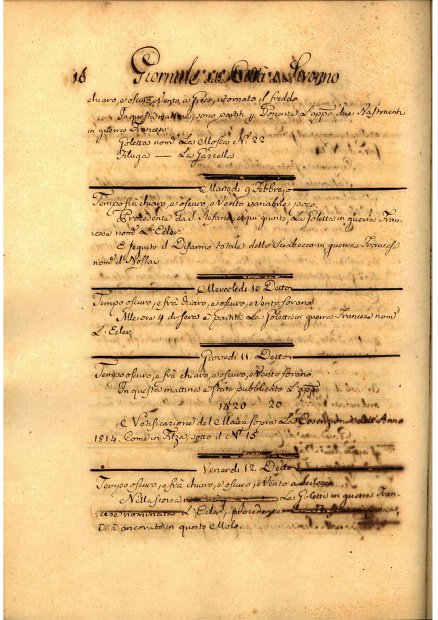 18 Giornale della Città di Livorno
chiaro, e oscuro, e Vento a Greco, e tornato il freddo.
In questa mattina sono partiti p. Ponente L'app. due Bastimenti
in guerra Francesi
Goletta nom. La Mosca N.° 22
Filuga — La Gazzella
Martedì 9 Febbrajo
Tempo frà chiaro, e oscuro, e Vento variabile poco.
Procedente da S. Stefano, è qui giunto La Goletta in guerra Fran-
cese nom. L'Ecler
È seguito il Disarmo totale dello Sciabecco in guerra Francese
nom.
Mercoledì 10 Detto
Tempo oscuro, e frà chiaro, e oscuro, e Vento forano
Alle ore 4 di sera è partita La Goletta in guerra Francese nom.
L'Ecler
Giovedì 11. Detto
Tempo oscuro, e frà chiaro, e oscuro, e Vento forano
In questa mattina è stato pubblicato L'app.
1820 20
E Notificazione del Maire sopra La Coscrizione dell'Anno
1814. Come in Filza sotto il N.° 15
Venerdì 12 Detto
Tempo oscuro, e frà chiaro, e oscuro, e Vento a
Nella scorsa notte La Goletta in guerra Fran-
cese nominata L'Ecler, procedente
ancorato in questo Molo.